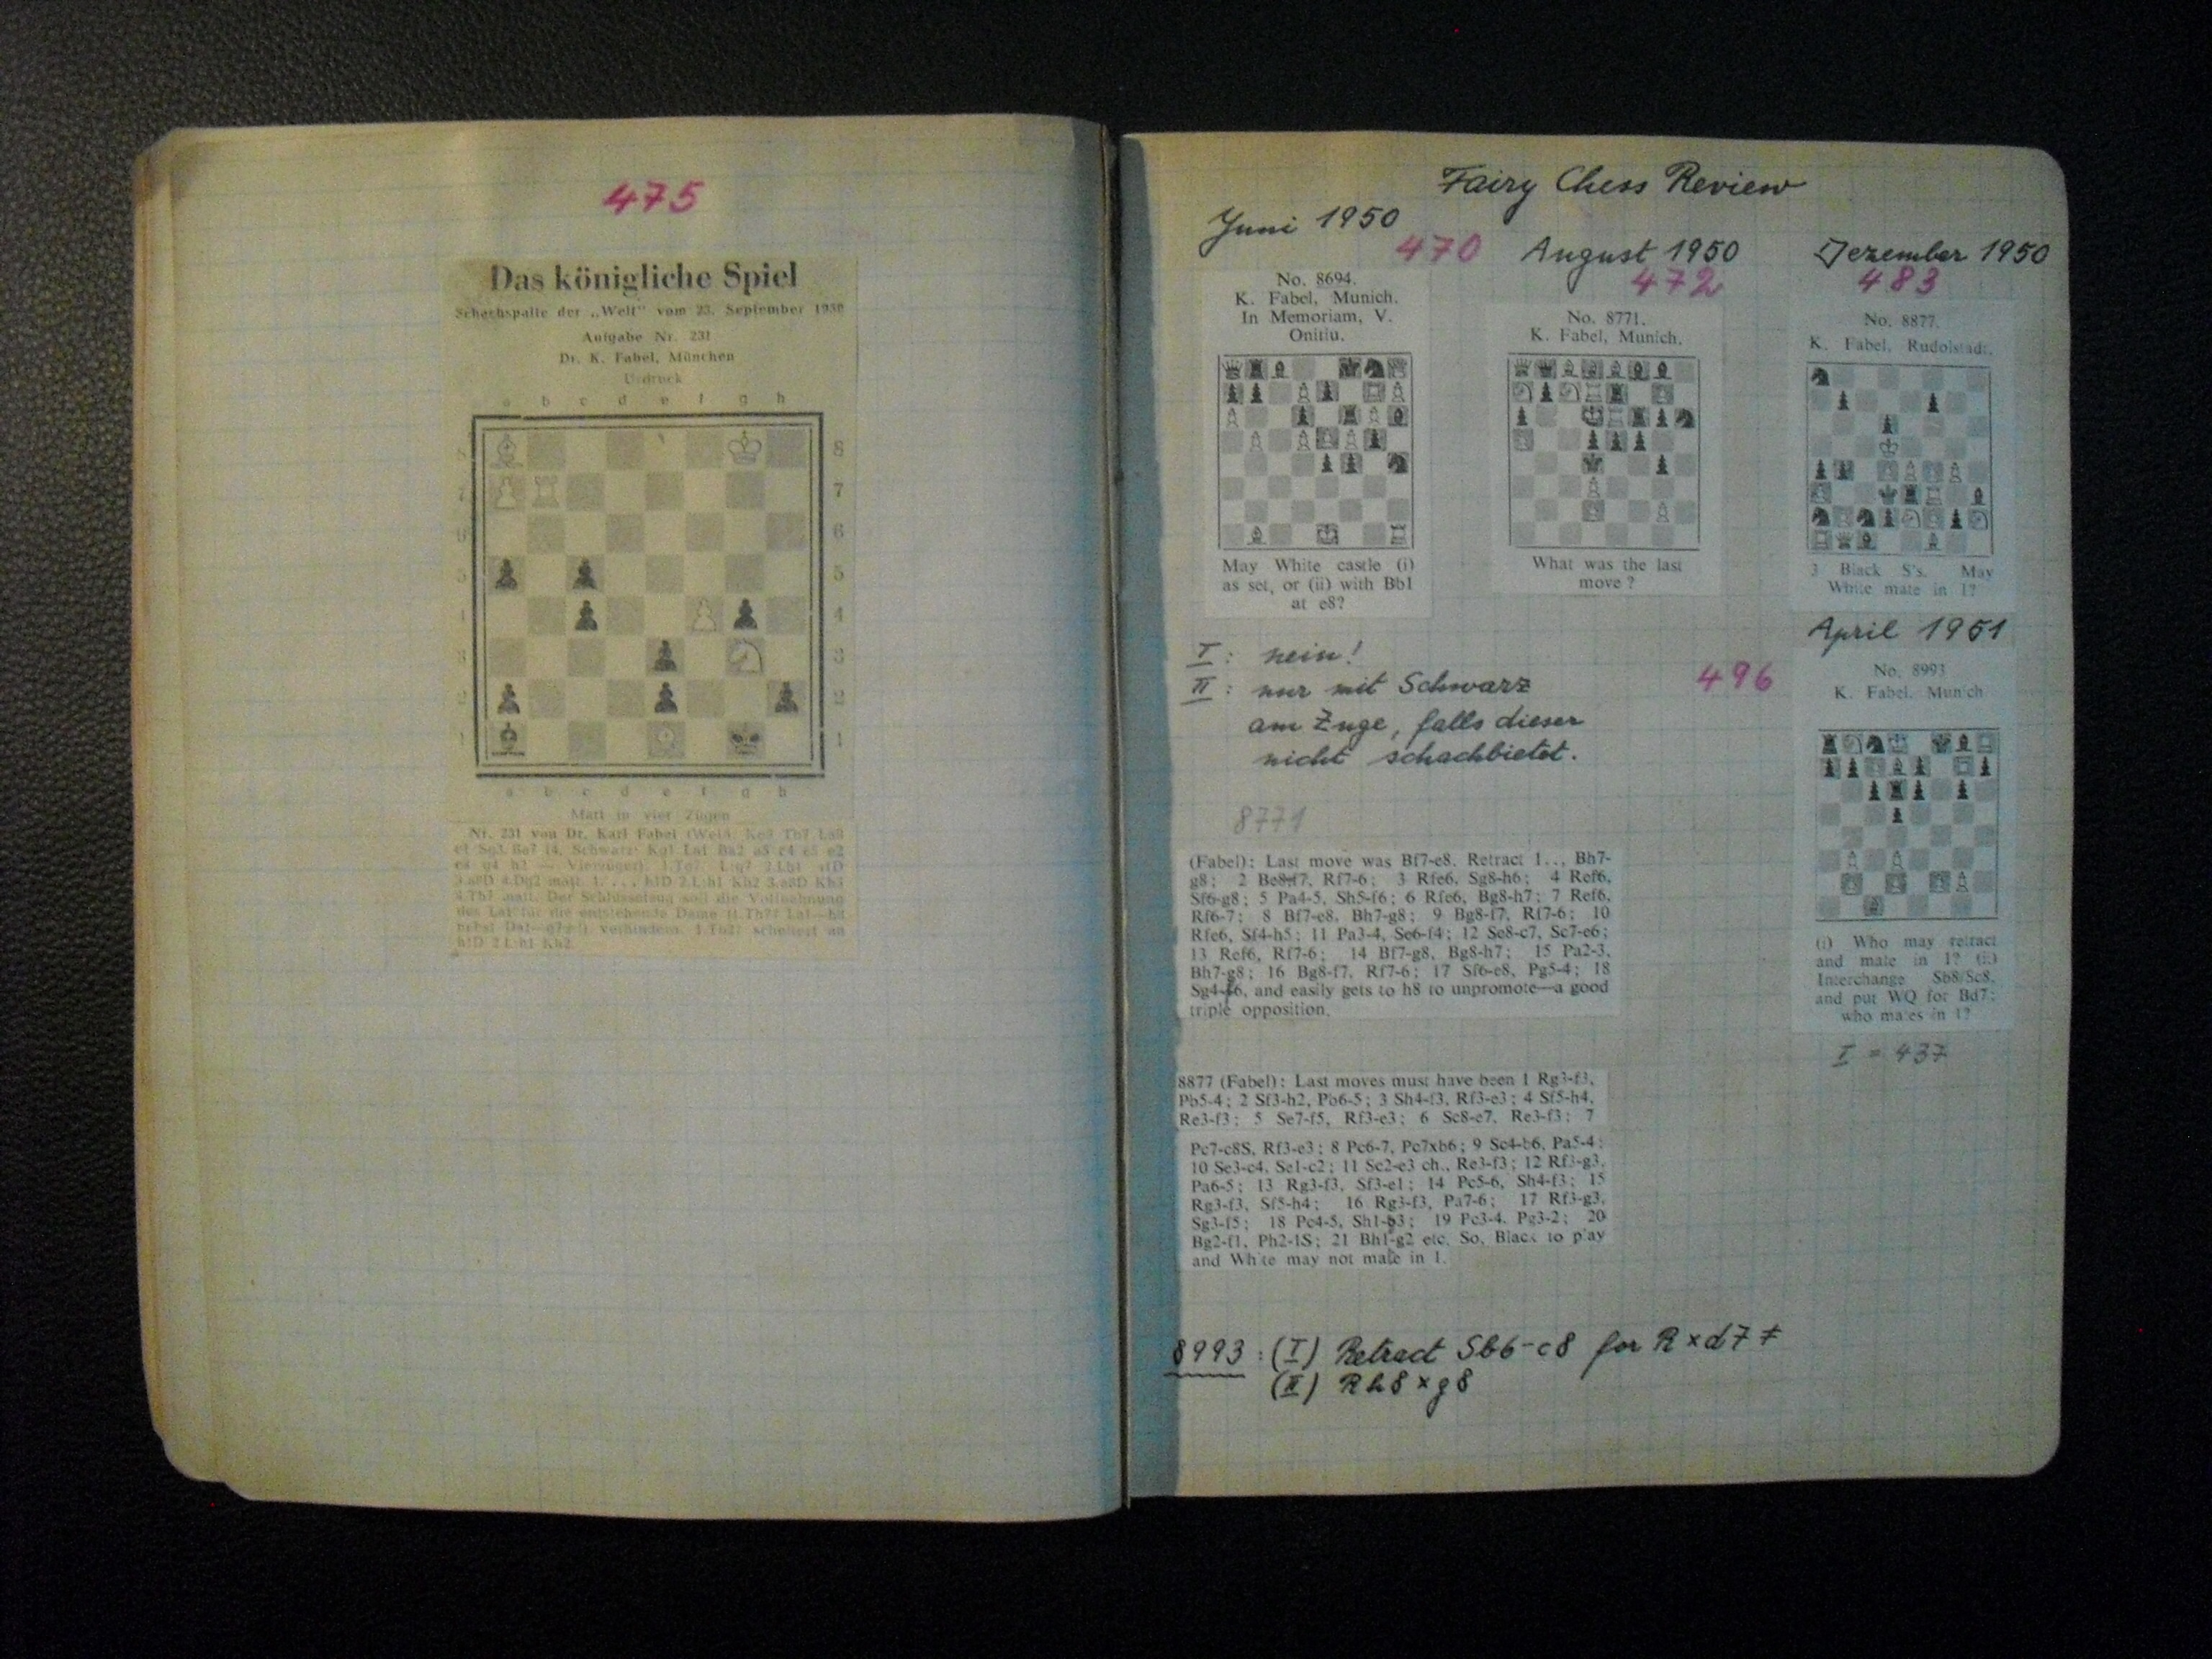 475
Das königliche Spiel
Schachspalte der „Welt" vom 23. September 1950
Aufgabe Nr. 231
Dr. K. Fabel, München
Urdruck
a b c d e f g h
8 8
7 7
6 6
5 5
4 4
3 3
2 2
1 1
a b c d e f g h
Matt in vier Zügen
Nr. 231 von Dr. Karl Fabel (Weiß: Kg8 Tb7 La8
e1 Sg3 Ba7 f4, Schwarz: Kg1 La1 Ba2 a5 c4 c5 e2
e3 g4 h2 — Vierzüger).
matt. Der Schlüsselzug soll die Vollbahnung
des La1 für die entstehende Dame
verhindern. 1.Tb2? scheitert an
h1D 2.L:h1 Kh2.
Fairy Chess Review
Juni 1950
470
No. 8694.
K. Fabel, Munich.
In Memoriam, V.
Onitiu.
May White castle (i)
as set, or (ii) with Bb1
at e8?
August 1950
472
No. 8771.
K. Fabel, Munich.
What was the last
move?
Dezember 1950
483
No. 8877.
K. Fabel, Rudolstadt.
3 Black S's. May
White mate in 1?
I: nein!
II: nur mit Schwarz
am Zuge, falls dieser
nicht schachbietet.
496
April 1951
No. 8993
K. Fabel, Munich
(i) Who may retract
and mate in 1? (ii)
Interchange Sb8/Sc8,
and put WQ for Bd7;
who mates in 1?
I = 437
8771
(Fabel): Last move was Bf7-e8. Retract 1.., Bh7-
g8; 2 Be8-f7, Rf7-6; 3 Rfe6, Sg8-h6; 4 Ref6,
Sf6-g8; 5 Pa4-5, Sh5-f6; 6 Rfe6, Bg8-h7; 7 Ref6,
Rf6-7; 8 Bf7-e8, Bh7-g8; 9 Bg8-f7, Rf7-6; 10
Rfe6, Sf4-h5; 11 Pa3-4, Se6-f4; 12 Se8-c7, Sc7-e6;
13 Ref6, Rf7-6; 14 Bf7-g8, Bg8-h7; 15 Pa2-3,
Bh7-g8; 16 Bg8-f7, Rf7-6; 17 Sf6-e8, Pg5-4; 18
Sg4-f6, and easily gets to h8 to unpromote—a good
triple opposition.
8877 (Fabel): Last moves must have been 1 Rg3-f3,
Pb5-4; 2 Sf3-h2, Pb6-5; 3 Sh4-f3, Rf3-e3; 4 Sf5-h4,
Re3-f3; 5 Se7-f5, Rf3-e3; 6 Sc8-e7, Re3-f3; 7
Pc7-c8S, Rf3-e3; 8 Pc6-7, Pc7xb6; 9 Sc4-b6, Pa5-4;
10 Se3-c4, Se1-c2; 11 Sc2-e3 ch., Re3-f3; 12 Rf3-g3,
Pa6-5; 13 Rg3-f3, Sf3-e1; 14 Pc5-6, Sh4-f3; 15
Rg3-f3, Sf5-h4; 16 Rg3-f3, Pa7-6; 17 Rf3-g3,
Sg3-f5; 18 Pc4-5, Sh1-g3; 19 Pc3-4, Pg3-2; 20
Bg2-f1, Ph2-1S; 21 Bh1-g2 etc. So, Black to play
and White may not mate in 1.
8993: (I) Retract Sb6-c8 for R×d7 ≠
(II) Rh8×g8